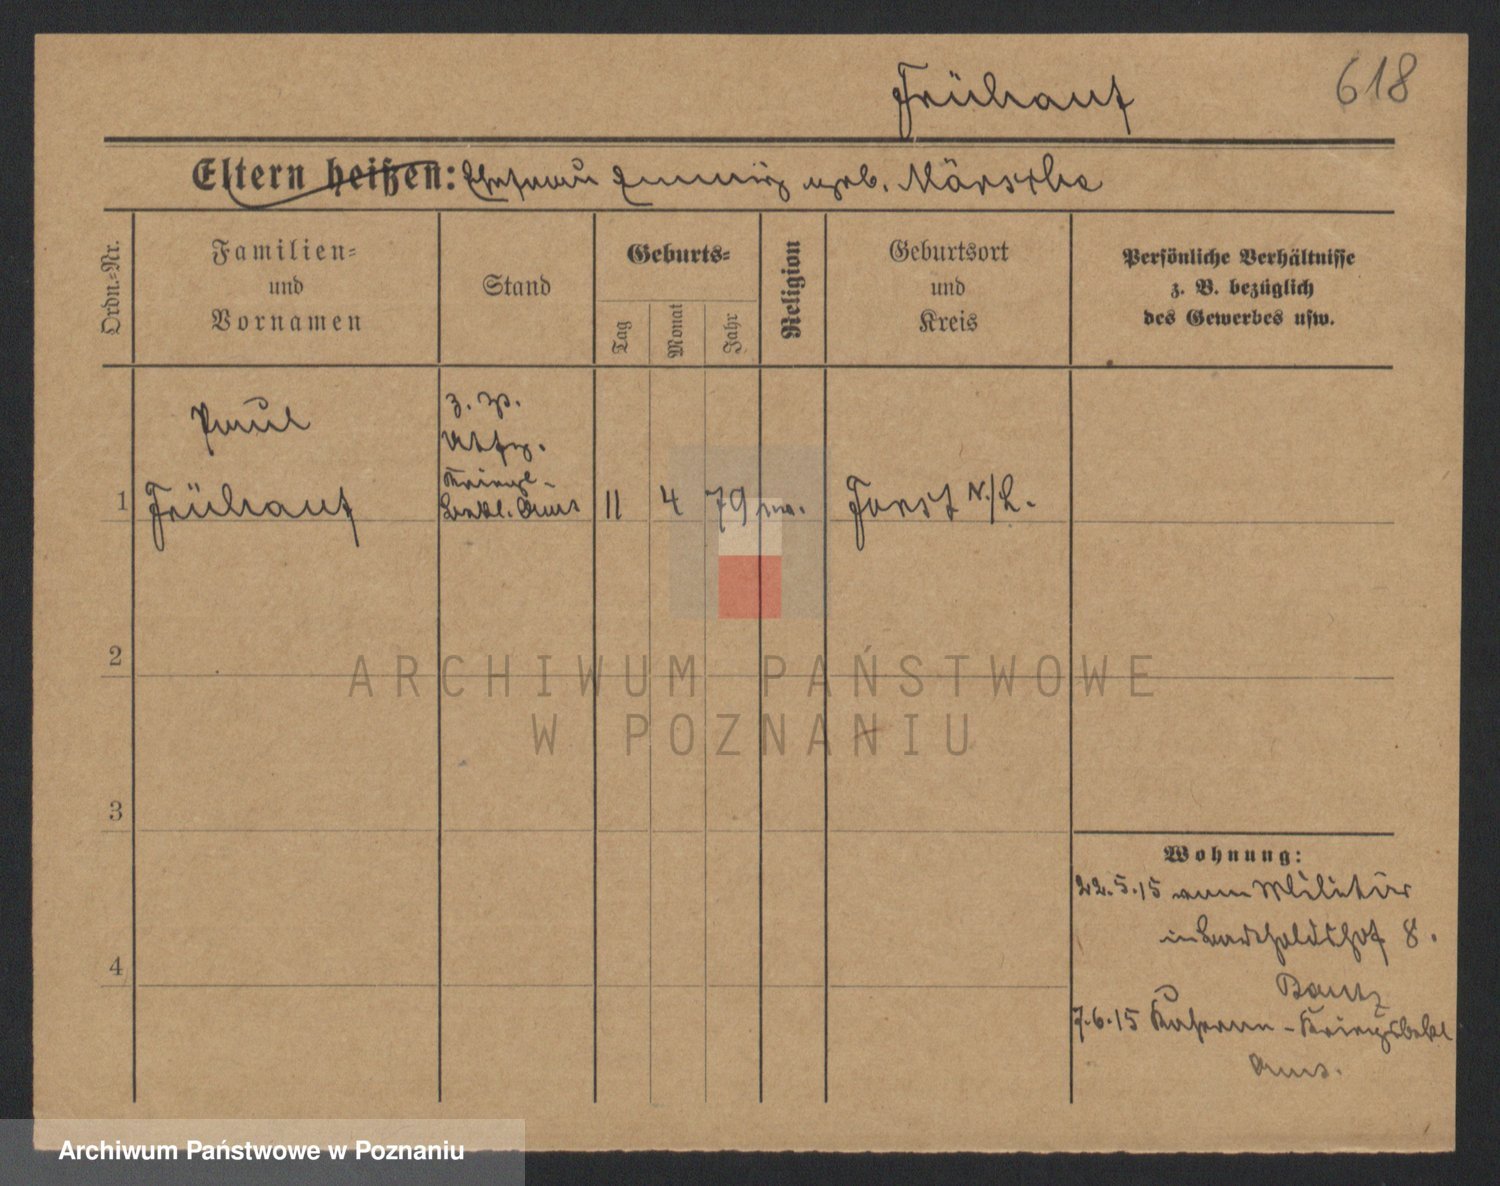 Frühauf
618
Eltern heißen: Ehefrau geb. Märschke
Ordn.-Nr.
Familien-
und
Vornamen
Stand
Geburts-
Tag
Monat
Jahr
Religion
Geburtsort
und
Kreis
Persönliche Verhältnisse
z. B. bezüglich
des Gewerbes usw.
Paul
z. Zt.
Kriegs-
Bekl. Amt
1
Frühauf
11
4
79
ev.
Forst N./L.
2
ARCHIWUM PAŃSTWOWE
W POZNANIU
3
Wohnung:
22.5.15 vom Militär
in Bartholdshof 8.
4
7.6.15 Kaserne - Kriegsbekl
Amt.
Archiwum Państwowe w Poznaniu